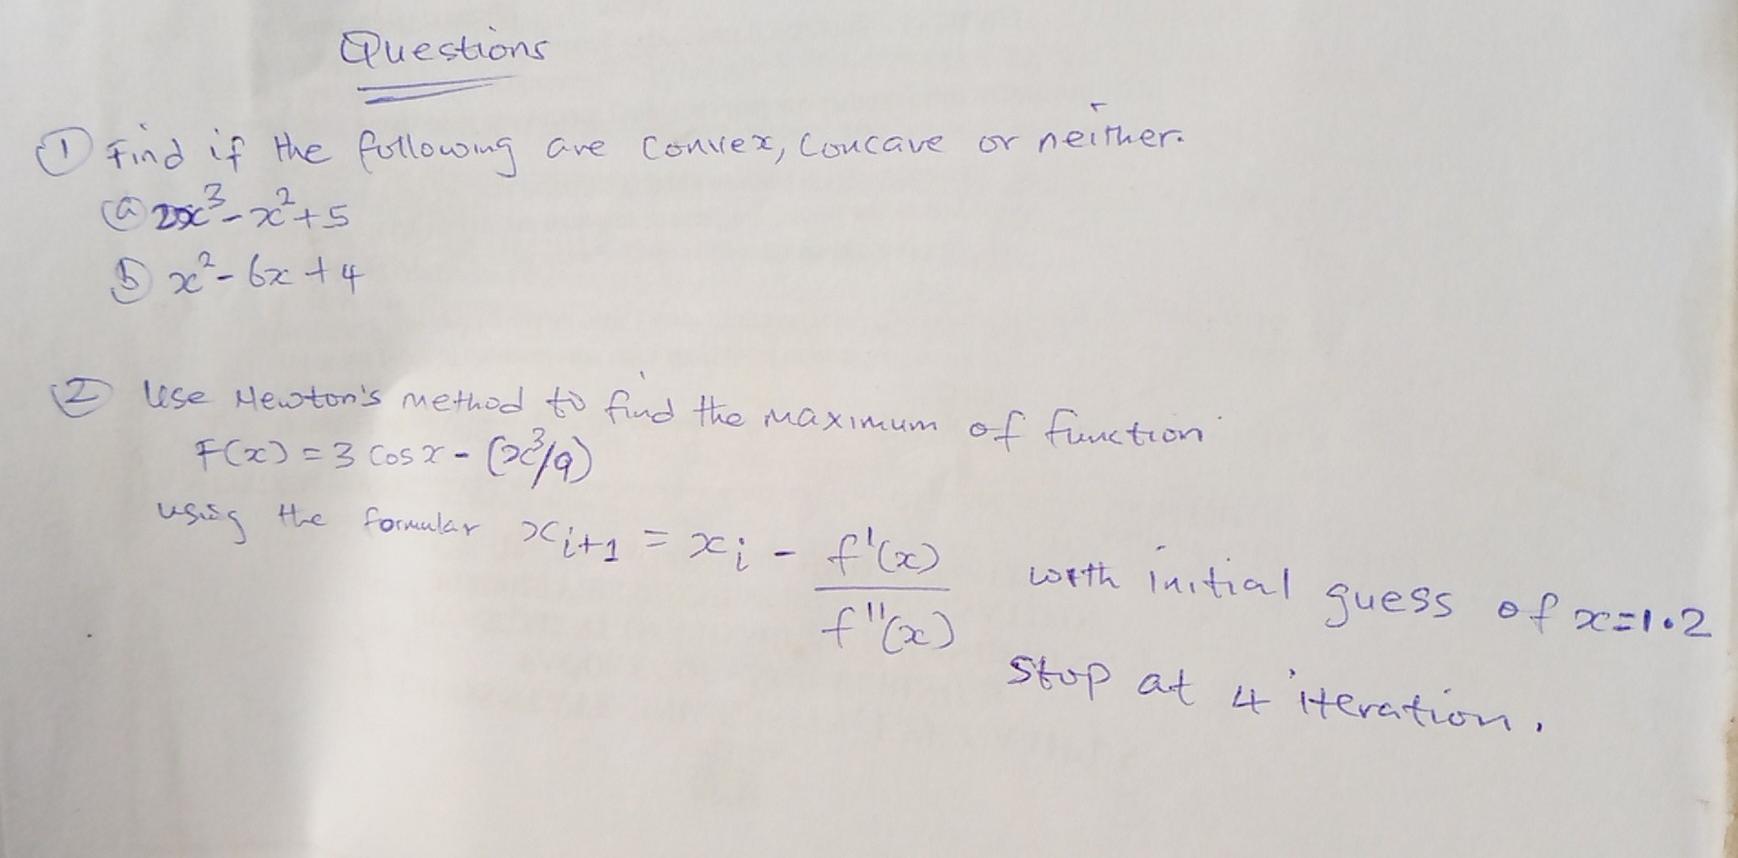 Questions
① Find if the following are convex, concave or neither.
ⓐ 2x³ - x² + 5
ⓑ x² - 6x + 4
② Use Newton's method to find the maximum of function
F(x) = 3 cos x - (x³/9)
using the formular xᵢ₊₁ = xᵢ - f'(x) / f''(x) with initial guess of x=1.2
Stop at 4 iteration.